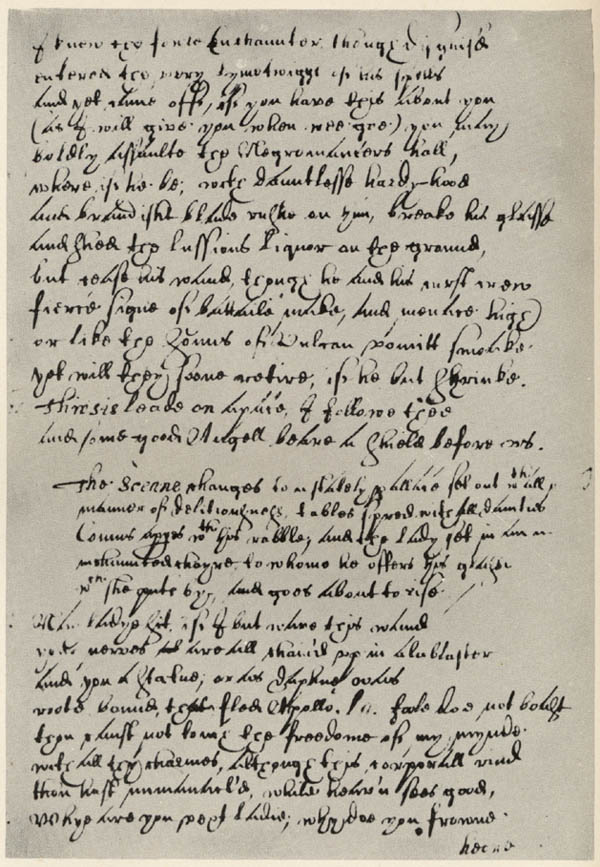 I knew the fowle Enchaunter, though disguis'd
entered the very lymetwiggs of his spells
and yet came off, if you have this about you
(as I will give you when wee goe) you may
boldly assaulte the Negromancers hall,
where if he be, with dauntlesse hardy-hood
and brandisht blade rushe on him, breake his glasse
and shed the lussious liquor on the ground,
but cease his wand, though he and his curst crew
fierce signe of battaile make, and menace high
or like the sonns of Vulcan vomitt smoake
yet will they soone retire, if he but shrinke.
Thirsis leade on apace, I followe thee
and some good Angell beare a shield before us.
The Sceane changes to a stately pallace set out wth all
manner of delitiousness, tables spred with all dainties
Comus appes wth his rabble, and the lady set in an
inchaunted chayre, to whome he offers his glasse
wch she puts by, and goes about to rise
ladye sit, if I but wave this wand
nerves are all chain'd up in alablaster
and you a statue; or as daphne was
roote bound, that fled Apollo. La. foole doe not boast
thou canst not touch the freedome of my mynde
with all thy charmes, although this corporall rind
thou hast immanacl'd, while heav'n sees good,
Whye are you vext ladie, why doe you frowne
heere